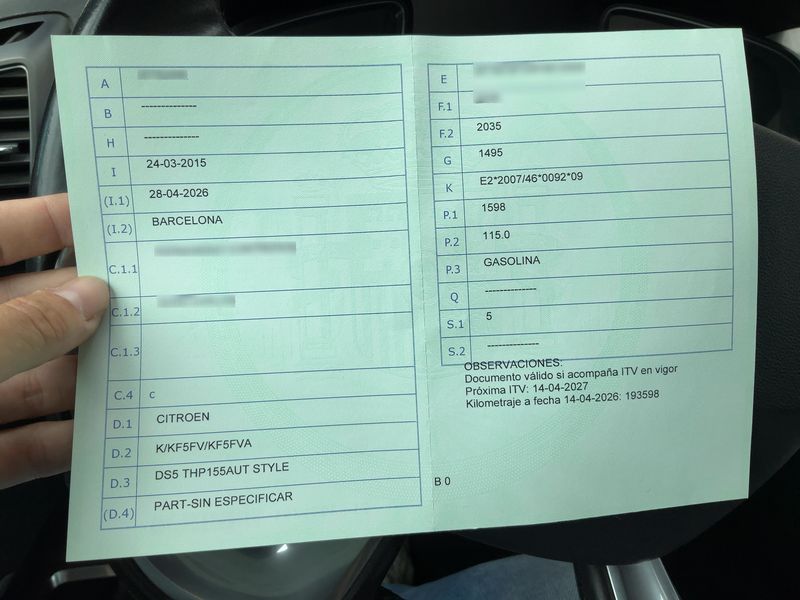 A
B --------------
H --------------
I 24-03-2015
(I.1) 28-04-2026
(I.2) BARCELONA
C.1.1
C.1.2
C.1.3
C.4 c
D.1 CITROEN
D.2 K/KF5FV/KF5FVA
D.3 DS5 THP155AUT STYLE
(D.4) PART-SIN ESPECIFICAR
E
F.1
F.2 2035
G 1495
K E2*2007/46*0092*09
P.1 1598
P.2 115.0
P.3 GASOLINA
Q --------------
S.1 5
S.2 --------------
OBSERVACIONES:
Documento válido si acompaña ITV en vigor
Próxima ITV: 14-04-2027
Kilometraje a fecha 14-04-2026: 193598
B 0